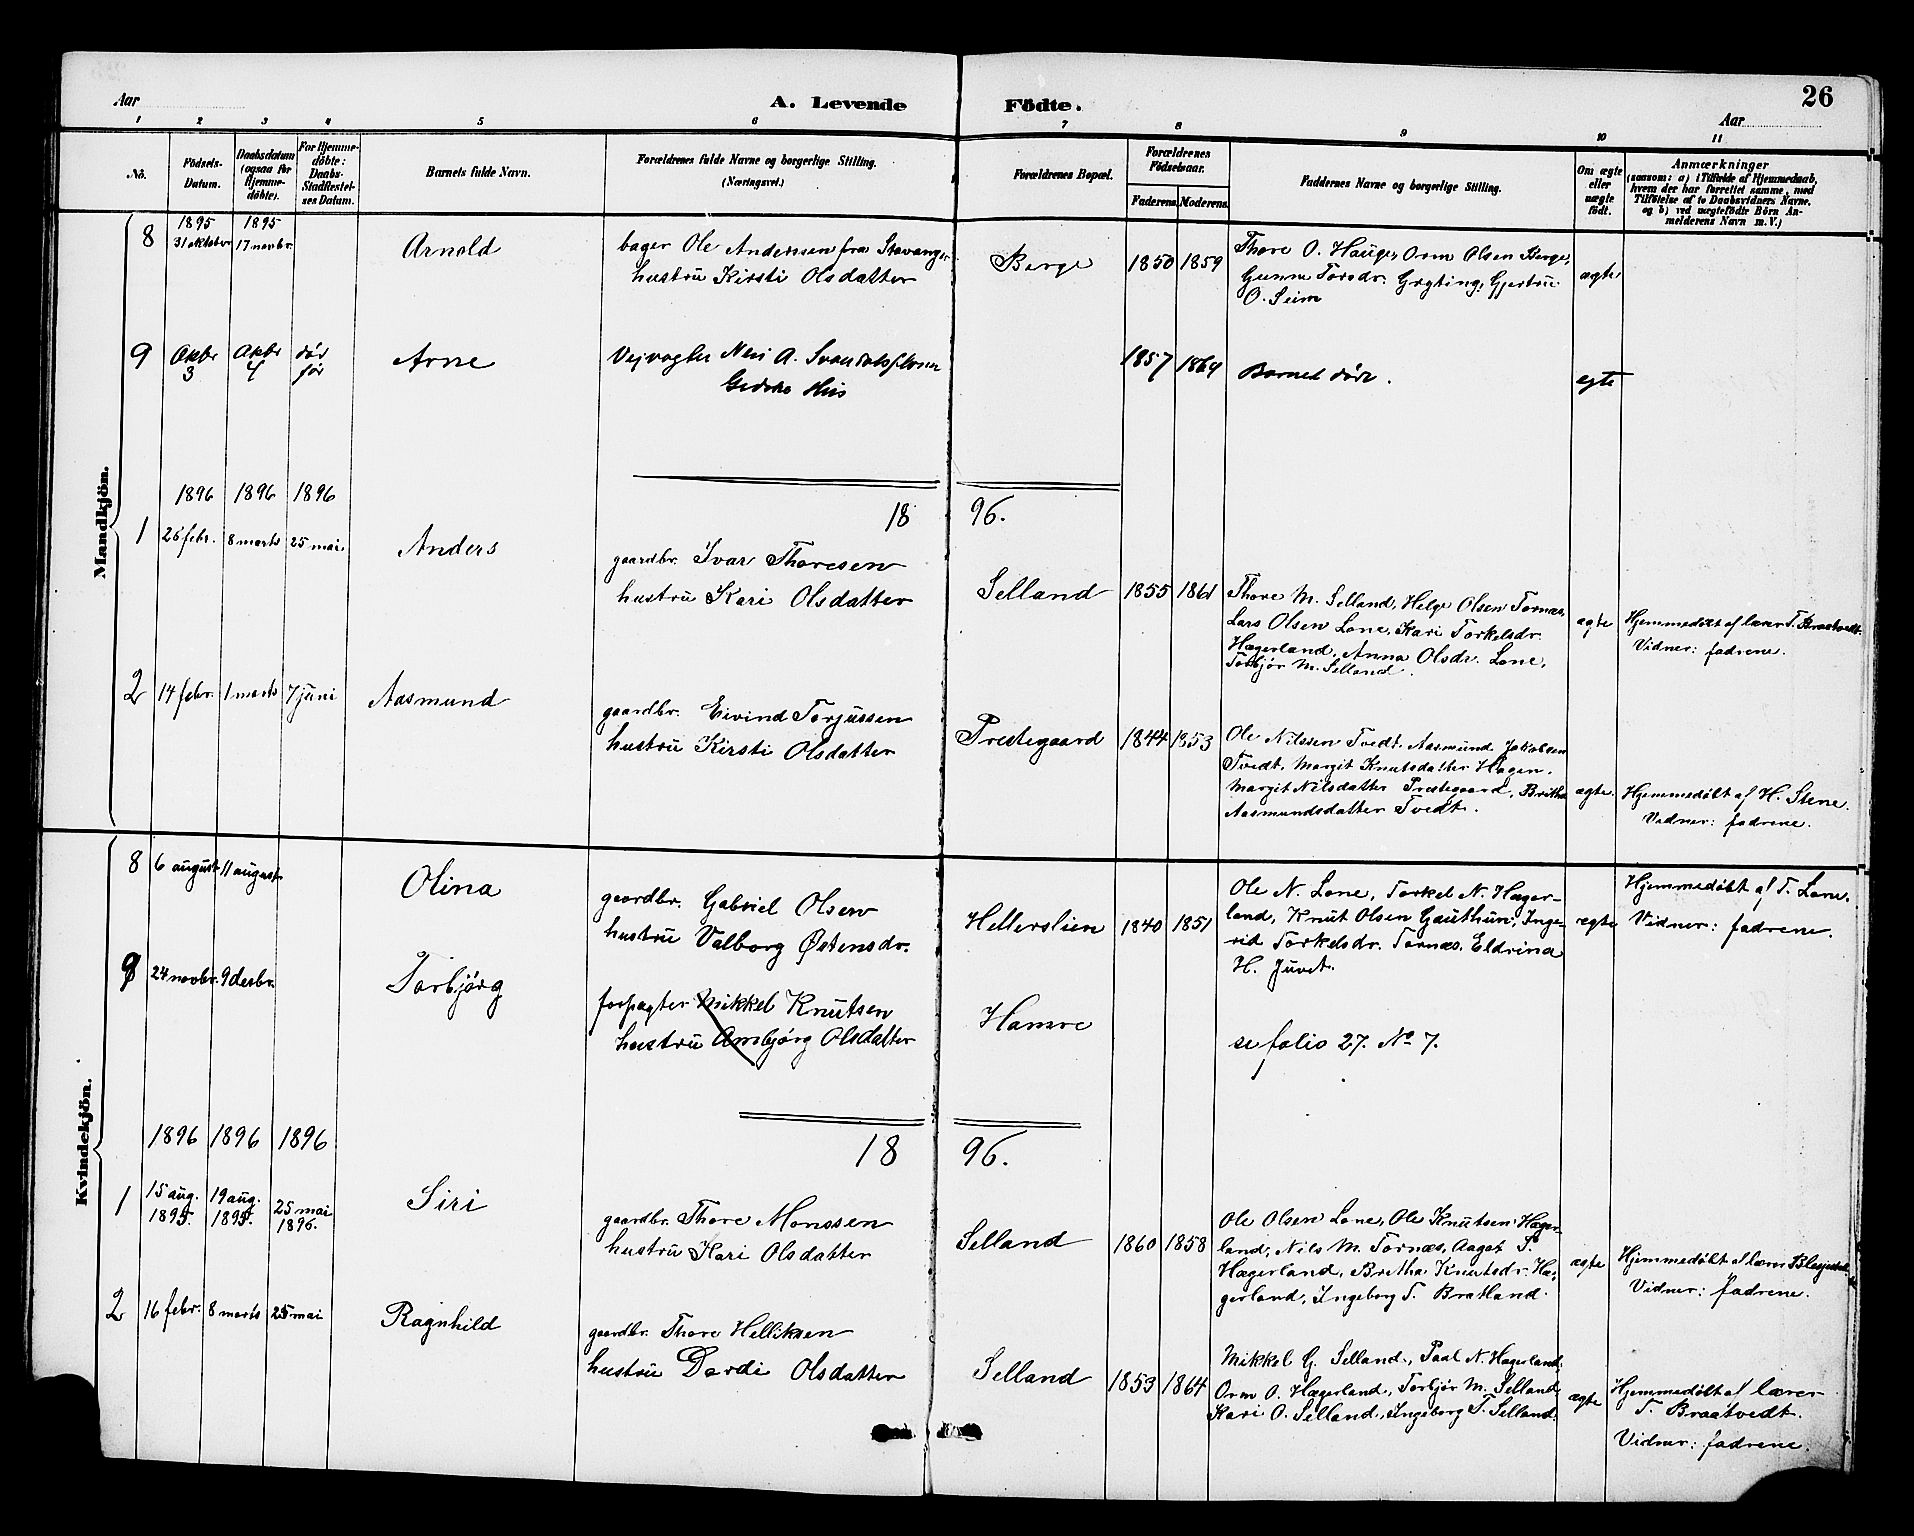 Aar
A. Levende Födte.
26
Aar
1 2 3 4 5 6 7 8 9 10 11
No.
Födsels-
Datum.
Daabsdatum
(ogsaa for
Hjemme-
döbte).
For Hjemme-
döbte:
Daabs-
Stadfæstel-
ses Datum.
Barnets fulde Navn.
Forældrenes fulde Navne og borgerlige Stilling.
(Næringsvei.)
Forældrenes Bopæl.
Forældrenes
Födselsaar.
Faderens. Moderens.
Faddernes Navne og borgerlige Stilling.
Om ægte
eller
uægte
födt.
Anmærkninger
(saasom: a) i Tilfælde af Hjemmedaab,
hvem der har forrettet samme, med
Tilföielse af to Daabsvidners Navne,
og b) ved uægtefödte Börn An-
melderens Navn m. V.)
Mandkjön.
1895 1895
8 31 oktober 17 novbr. Arnold
bager Ole Anderssen fra Stavanger
hustru Kirsti Olsdatter
Berge 1850 1859
Thore O. Hauge, Orm Olsen Berge,
Gunne Torsdr. Grgting, Gjertru
O. Seim
ægte
9 Oktbr 3 Oktbr 4 død før Arne
Vejvogter
1857 1869
Barnet døde.
egte
1896 1896 1896
18 96.
1 26 febr. 8 marts 25 mai Anders
gaardbr. Ivar Thoresen
hustru Kari Olsdatter
Selland 1855 1861
Thore M. Selland, Helge Olsen Tornæs,
Lars Olsen Lone, Kari Torkelsdr.
Hægerland, Anna Olsdr. Lone,
Torbjør M. Selland.
ægte
Hjemmedøbt af lærer T. Braatvedt.
Vidner: fadrene.
2 14 febr. 1 marts 7 juni Aasmund
gaardbr. Eivind Torjussen
hustru Kirsti Olsdatter
Prestegaard 1844 1853
Ole Nilssen Tvedt, Aasmund Jakobsen
Tvedt, Margit Knutsdatter Hagen,
Margit Nilsdatter Prestegaard, Britha
Aasmundsdatter Tvedt.
ægte.
Hjemmedøbt af H. Stene.
Vidner: fadrene.
Kvindekjön.
8 6 august 11 august Olina
gaardbr. Gabriel Olsen
hustru Valborg Østensdr.
Hellerslien 1840 1851
Ole N. Lone, Torkel N. Hæger-
land, Knut Olsen Gauthun, Inge-
rid Torkelsdr. Tornæs, Eldrina
H. Juvet.
ægte
Hjemmedøbt af T. Lone.
Vidner: fadrene.
9 24 novbr. 9 desbr. Torbjörg
forpagter Mikkel Knutsen
hustru Ambjørg Olsdatter
Hamre
se folio 27. No 7.
1896 1896 1896
18 96.
1 15 aug. 1895. 19 aug. 1895. 25 mai 1896. Siri
gaardbr. Thore Monssen
hustru Kari Olsdatter
Selland 1860 1858
Ole Olsen Lone, Ole Knutsen Hæger-
land, Nils M. Tornæs, Aagot T.
Hægerland, Britha Knutsdr. Hæ-
gerland, Ingeborg T. Bratland.
ægte
Hjemmedøbt af lærer
Vidner: fadrene.
2 16 febr. 8 marts 25 mai Ragnhild
gaardbr. Thore Helliksen
hustru Dordi Olsdatter
Selland 1853 1864
Mikkel G. Selland, Paal N. Hægerland
Orm O. Hægerland, Torbjør M. Selland,
Kari O. Selland, Ingeborg T. Selland.
ægte
Hjemmedøbt af lærer
T. Braatvedt.
Vidner: fadrene.